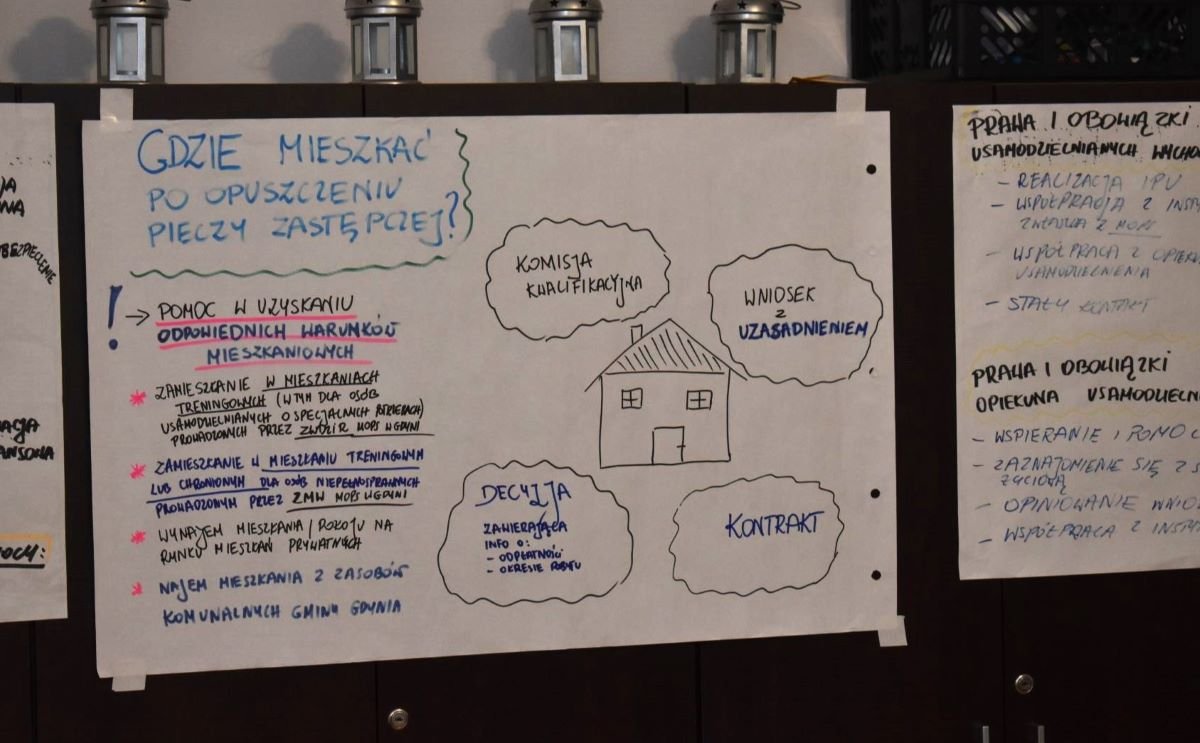 GDZIE MIESZKAĆ
PO OPUSZCZENIU
PIECZY ZASTĘPCZEJ?
! → POMOC W UZYSKANIU
ODPOWIEDNICH WARUNKÓW
MIESZKANIOWYCH
* ZAMIESZKANIE W MIESZKANIACH
TRENINGOWYCH (W TYM DLA OSÓB
USAMODZIELNIANYCH O SPECJALNYCH POTRZEBACH)
PROWADZONYCH PRZEZ ZWOZIR MOPS W GDYNI
* ZAMIESZKANIE W MIESZKANIU TRENINGOWYM
LUB CHRONIONYM DLA OSÓB NIEPEŁNOSPRAWNYCH
PROWADZONYM PRZEZ ZMW MOPS W GDYNI
* WYNAJEM MIESZKANIA / POKOJU NA
RYNKU MIESZKAŃ PRYWATNYCH
* NAJEM MIESZKANIA Z ZASOBÓW
KOMUNALNYCH GMINY GDYNIA
KOMISJA
KWALIFIKACYJNA
WNIOSEK
Z
UZASADNIENIEM
DECYZJA
ZAWIERAJĄCA
INFO O:
- ODPŁATNOŚCI
- OKRESIE POBYTU
KONTRAKT
PRAWA I OBOWIĄZKI
USAMODZIELNIANYCH WYCHO
- REALIZACJA IPU
- WSPÓŁPRACJA Z INST
Z MOPS
- WSPÓŁPRACA Z OPIEKU
USAMODZIELNIENIA
- STAŁY KONTAKT
PRAWA I OBOWIĄZKI
OPIEKUNA USAMODZIELN
- WSPIERANIE I POMOC
- ZAZNAJOMIENIE SIĘ Z S
ŻYCIOWĄ
- OPINIOWANIE WNIO
- WSPÓŁPRACA Z INSTY